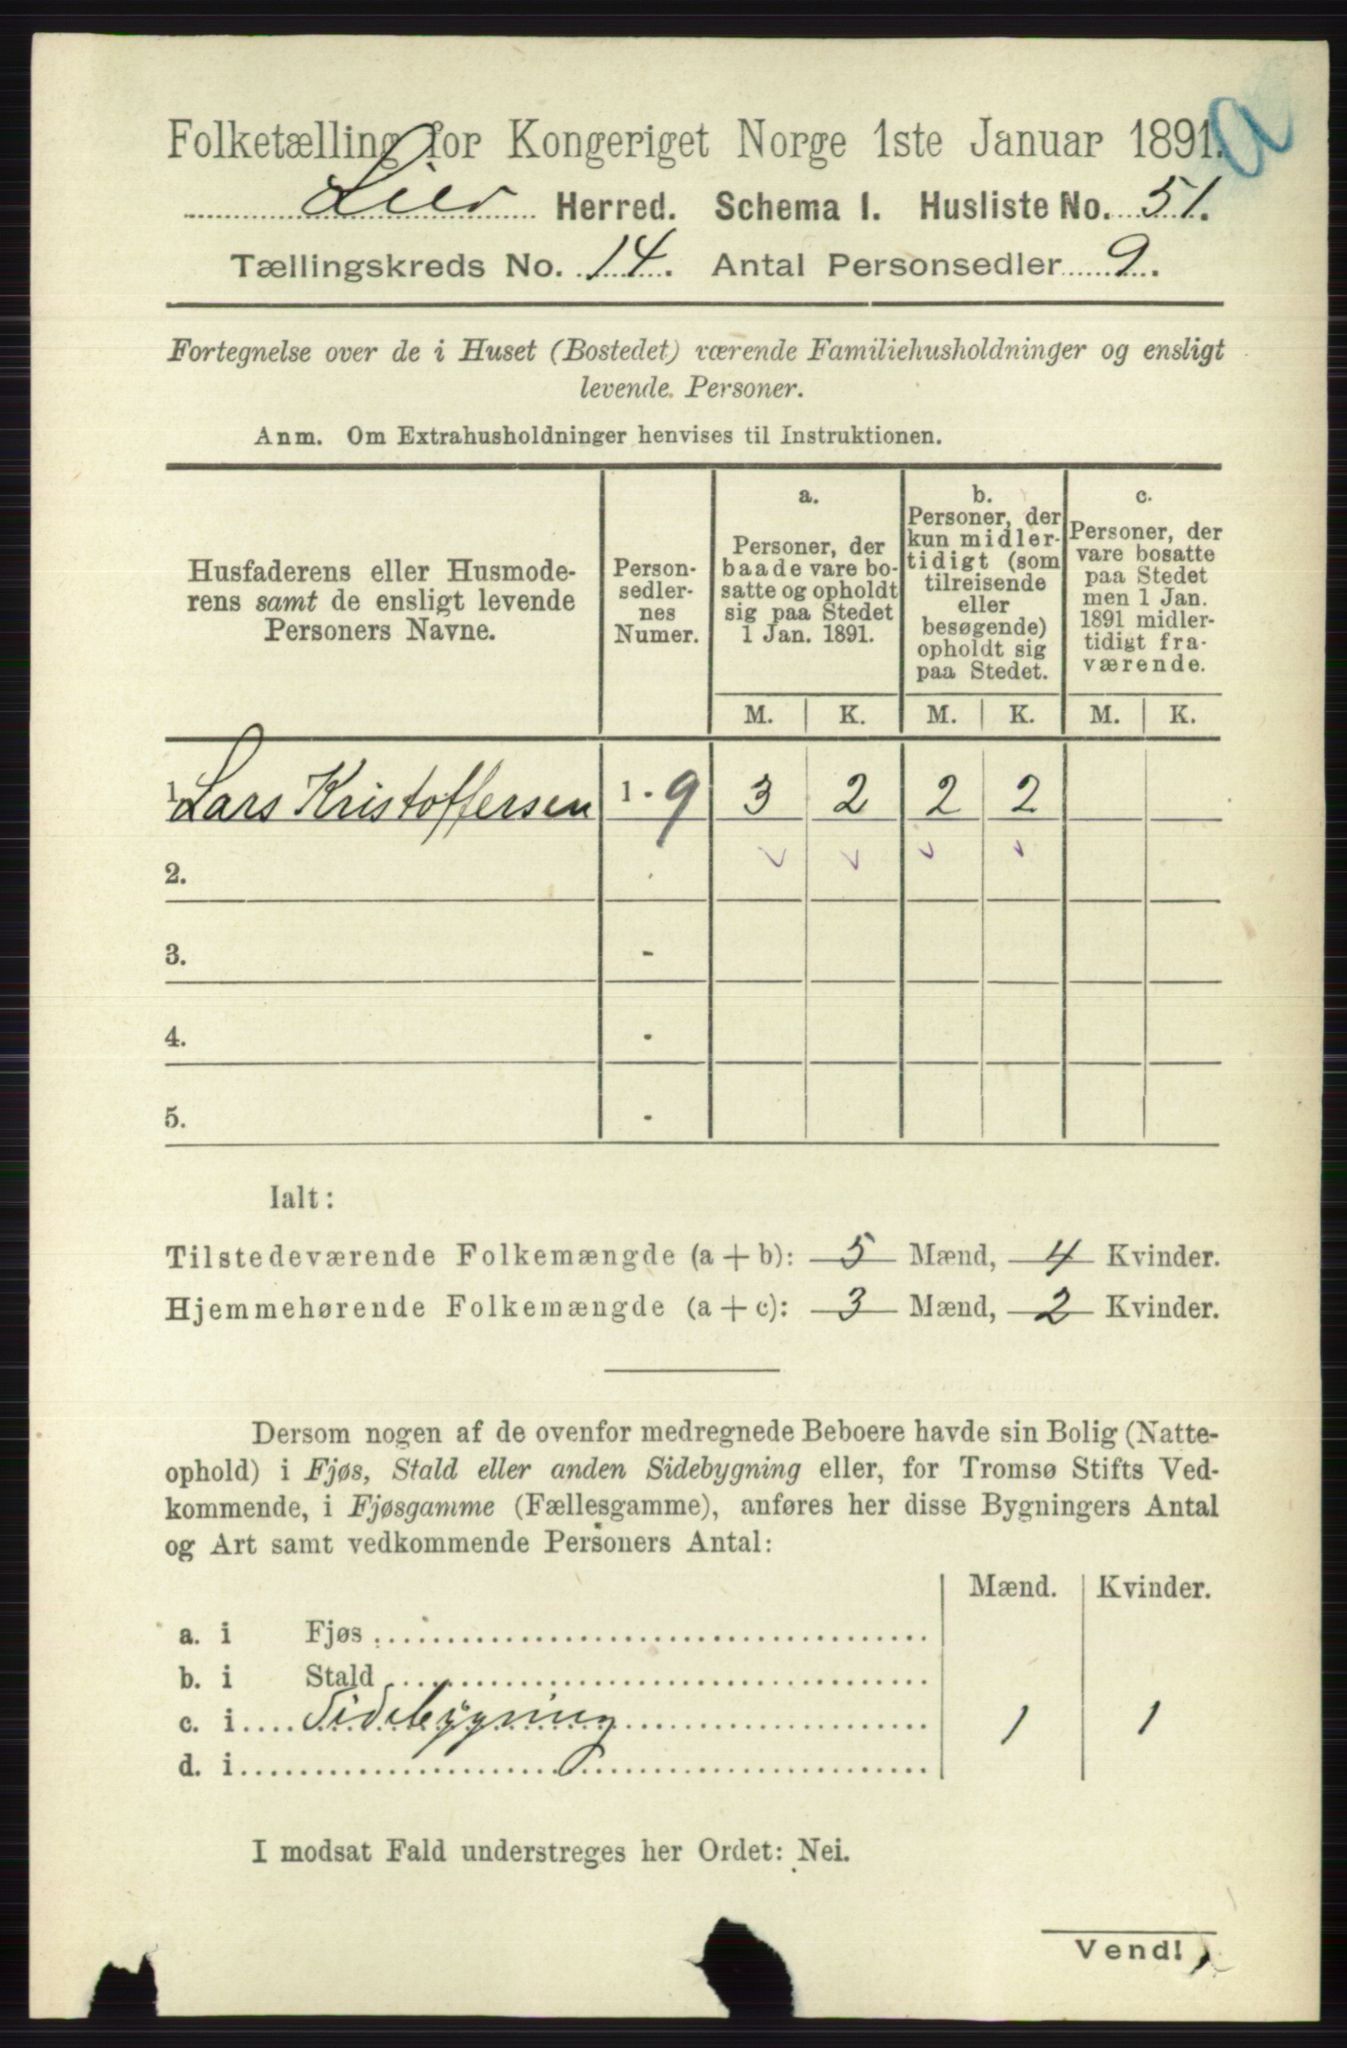 Folketælling for Kongeriget Norge 1ste Januar 1891.
a
Lier Herred. Schema I. Husliste No. 51.
Tællingskreds No. 14. Antal Personsedler 9.
Fortegnelse over de i Huset (Bostedet) værende Familiehusholdninger og ensligt
levende Personer.
Anm. Om Extrahusholdninger henvises til Instruktionen.
Husfaderens eller Husmode-
rens samt de ensligt levende
Personers Navne.
Person-
sedler-
nes
Numer.
a.
Personer, der
baade vare bo-
satte og opholdt
sig paa Stedet
1 Jan. 1891.
b.
Personer, der
kun midler-
tidigt (som
tilreisende
eller
besøgende)
opholdt sig
paa Stedet.
c.
Personer, der
vare bosatte
paa Stedet
men 1 Jan.
1891 midler-
tidigt fra-
værende.
M. K. M. K. M. K.
1. Lars Kristoffersen 1 - 9 3 2 2 2
2.
3. -
4. -
5. -
Ialt:
Tilstedeværende Folkemængde (a + b): 5 Mænd, 4 Kvinder.
Hjemmehørende Folkemængde (a + c): 3 Mænd, 2 Kvinder.
Dersom nogen af de ovenfor medregnede Beboere havde sin Bolig (Natte-
ophold) i Fjøs, Stald eller anden Sidebygning eller, for Tromsø Stifts Ved-
kommende, i Fjøsgamme (Fællesgamme), anføres her disse Bygningers Antal
og Art samt vedkommende Personers Antal:
Mænd. Kvinder.
a. i Fjøs
b. i Stald
c. i Sidebygning 1 1
d. i
I modsat Fald understreges her Ordet: Nei.
Vend!